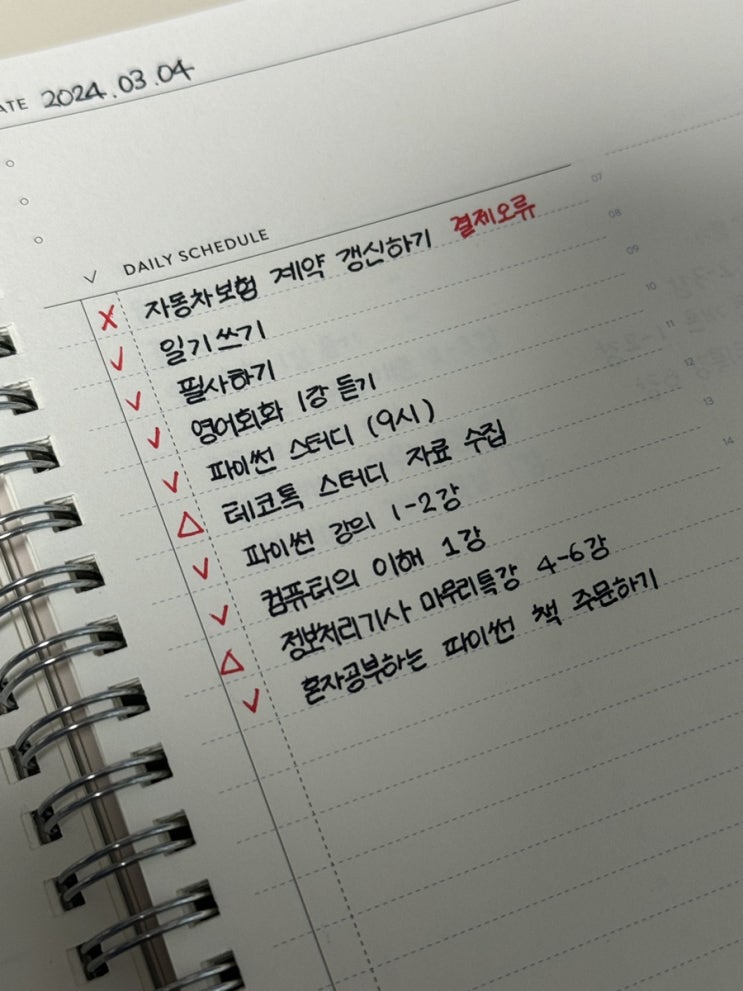 ATE 2024.03.04
DAILY SCHEDULE
X 자동차보험 계약 갱신하기 결제오류
✓ 일기쓰기
✓ 필사하기
✓ 영어회화 1강 듣기
✓ 파이썬 스터디 (9시)
△ 테코톡 스터디 자료 수집
✓ 파이썬 강의 1-2강
✓ 컴퓨터의 이해 1강
△ 정보처리기사 마무리특강 4-6강
✓ 혼자공부하는 파이썬 책 주문하기
07
08
09
10
11
12
13
14